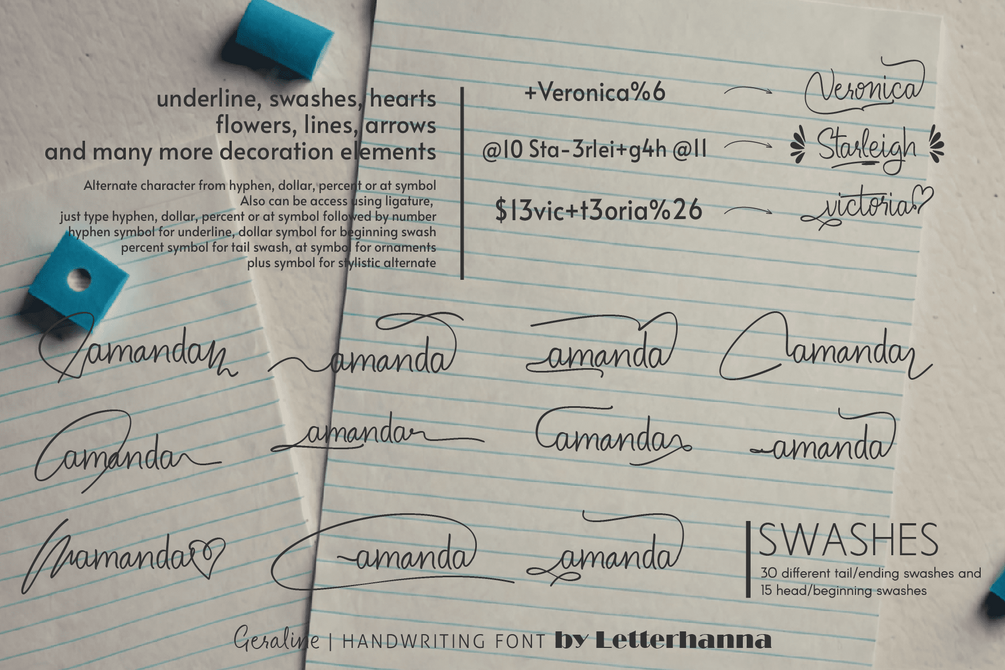 underline, swashes, hearts
flowers, lines, arrows
and many more decoration elements
Alternate character from hyphen, dollar, percent or at symbol
Also can be access using ligature,
just type hyphen, dollar, percent or at symbol followed by number
hyphen symbol for underline, dollar symbol for beginning swash
percent symbol for tail swash, at symbol for ornaments
plus symbol for stylistic alternate
+Veronica%6 Veronica
@10 Sta-3rlei+g4h @11 Starleigh
$13vic+t3oria%26 victoria
amanda amanda amanda amanda
amanda amanda amanda amanda
amanda amanda amanda
SWASHES
30 different tail/ending swashes and
15 head/beginning swashes
Geraline | HANDWRITING FONT by Letterhanna